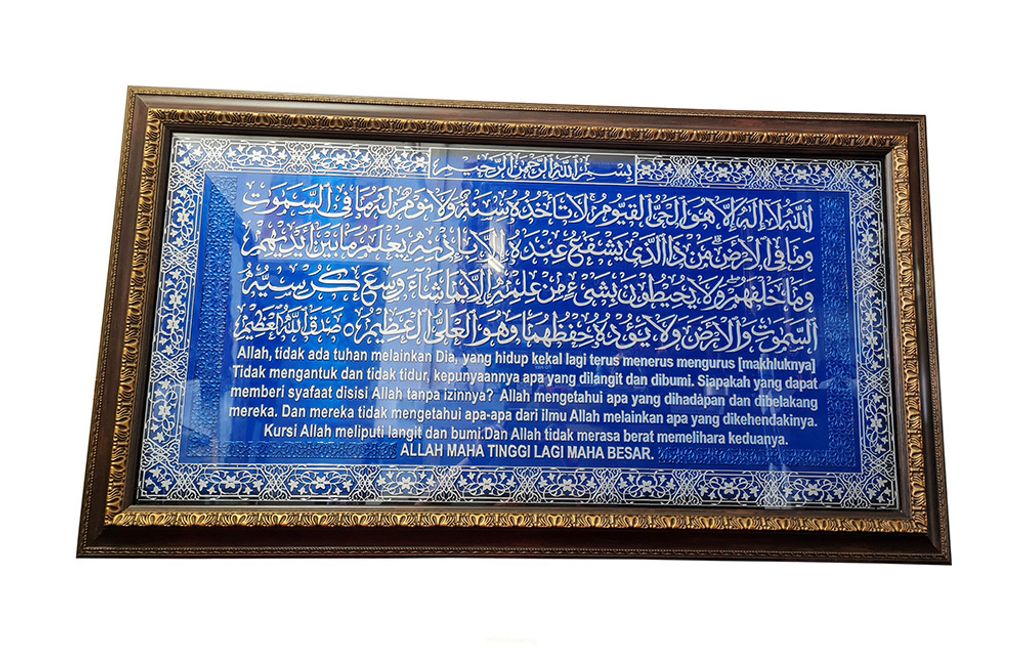 بِسْمِ اللهِ الرَّحْمٰنِ الرَّحِيْمِ
اَللهُ لَا اِلٰهَ اِلَّا هُوَ الْحَيُّ الْقَيُّوْمُ لَا تَأْخُذُهُ سِنَةٌ وَلَا نَوْمٌ لَهُ مَا فِى السَّمٰوٰتِ
وَمَا فِى الْاَرْضِ مَنْ ذَا الَّذِيْ يَشْفَعُ عِنْدَهُ اِلَّا بِاِذْنِهِ يَعْلَمُ مَا بَيْنَ اَيْدِيْهِمْ
وَمَا خَلْفَهُمْ وَلَا يُحِيْطُوْنَ بِشَيْءٍ مِنْ عِلْمِهِ اِلَّا بِمَا شَاءَ وَسِعَ كُرْسِيُّهُ
السَّمٰوٰتِ وَالْاَرْضَ وَلَا يَئُوْدُهُ حِفْظُهُمَا وَهُوَ الْعَلِيُّ الْعَظِيْمُ ٥ صَدَقَ اللهُ الْعَظِيْمُ
Allah, tidak ada tuhan melainkan Dia, yang hidup kekal lagi terus menerus mengurus [makhluknya]
Tidak mengantuk dan tidak tidur, kepunyaannya apa yang dilangit dan dibumi. Siapakah yang dapat
memberi syafaat disisi Allah tanpa izinnya? Allah mengetahui apa yang dihadapan dan dibelakang
mereka. Dan mereka tidak mengetahui apa-apa dari ilmu Allah melainkan apa yang dikehendakinya.
Kursi Allah meliputi langit dan bumi.Dan Allah tidak merasa berat memelihara keduanya.
ALLAH MAHA TINGGI LAGI MAHA BESAR.